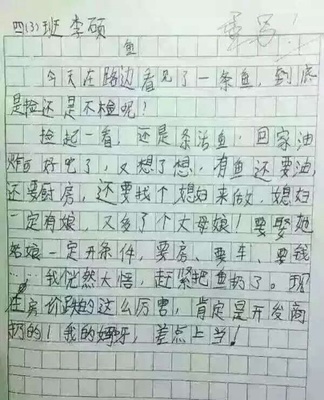 四(3)班 李硕 重写!
鱼
今天在路边看见了一条鱼,到底
是捡还是不捡呢!
捡起一看,还是条活鱼,回家油
炸可好吃了,又想了想,有鱼还要油,
还要厨房,还要找个媳妇来做,媳妇
一定有娘,又多了个丈母娘!要娶她
姑娘一定开条件,要房、要车、要钱
……我恍然大悟,赶紧把鱼扔了。现
在房价跌的这么厉害,肯定是开发商
扔的!我的妈呀,差点上当!